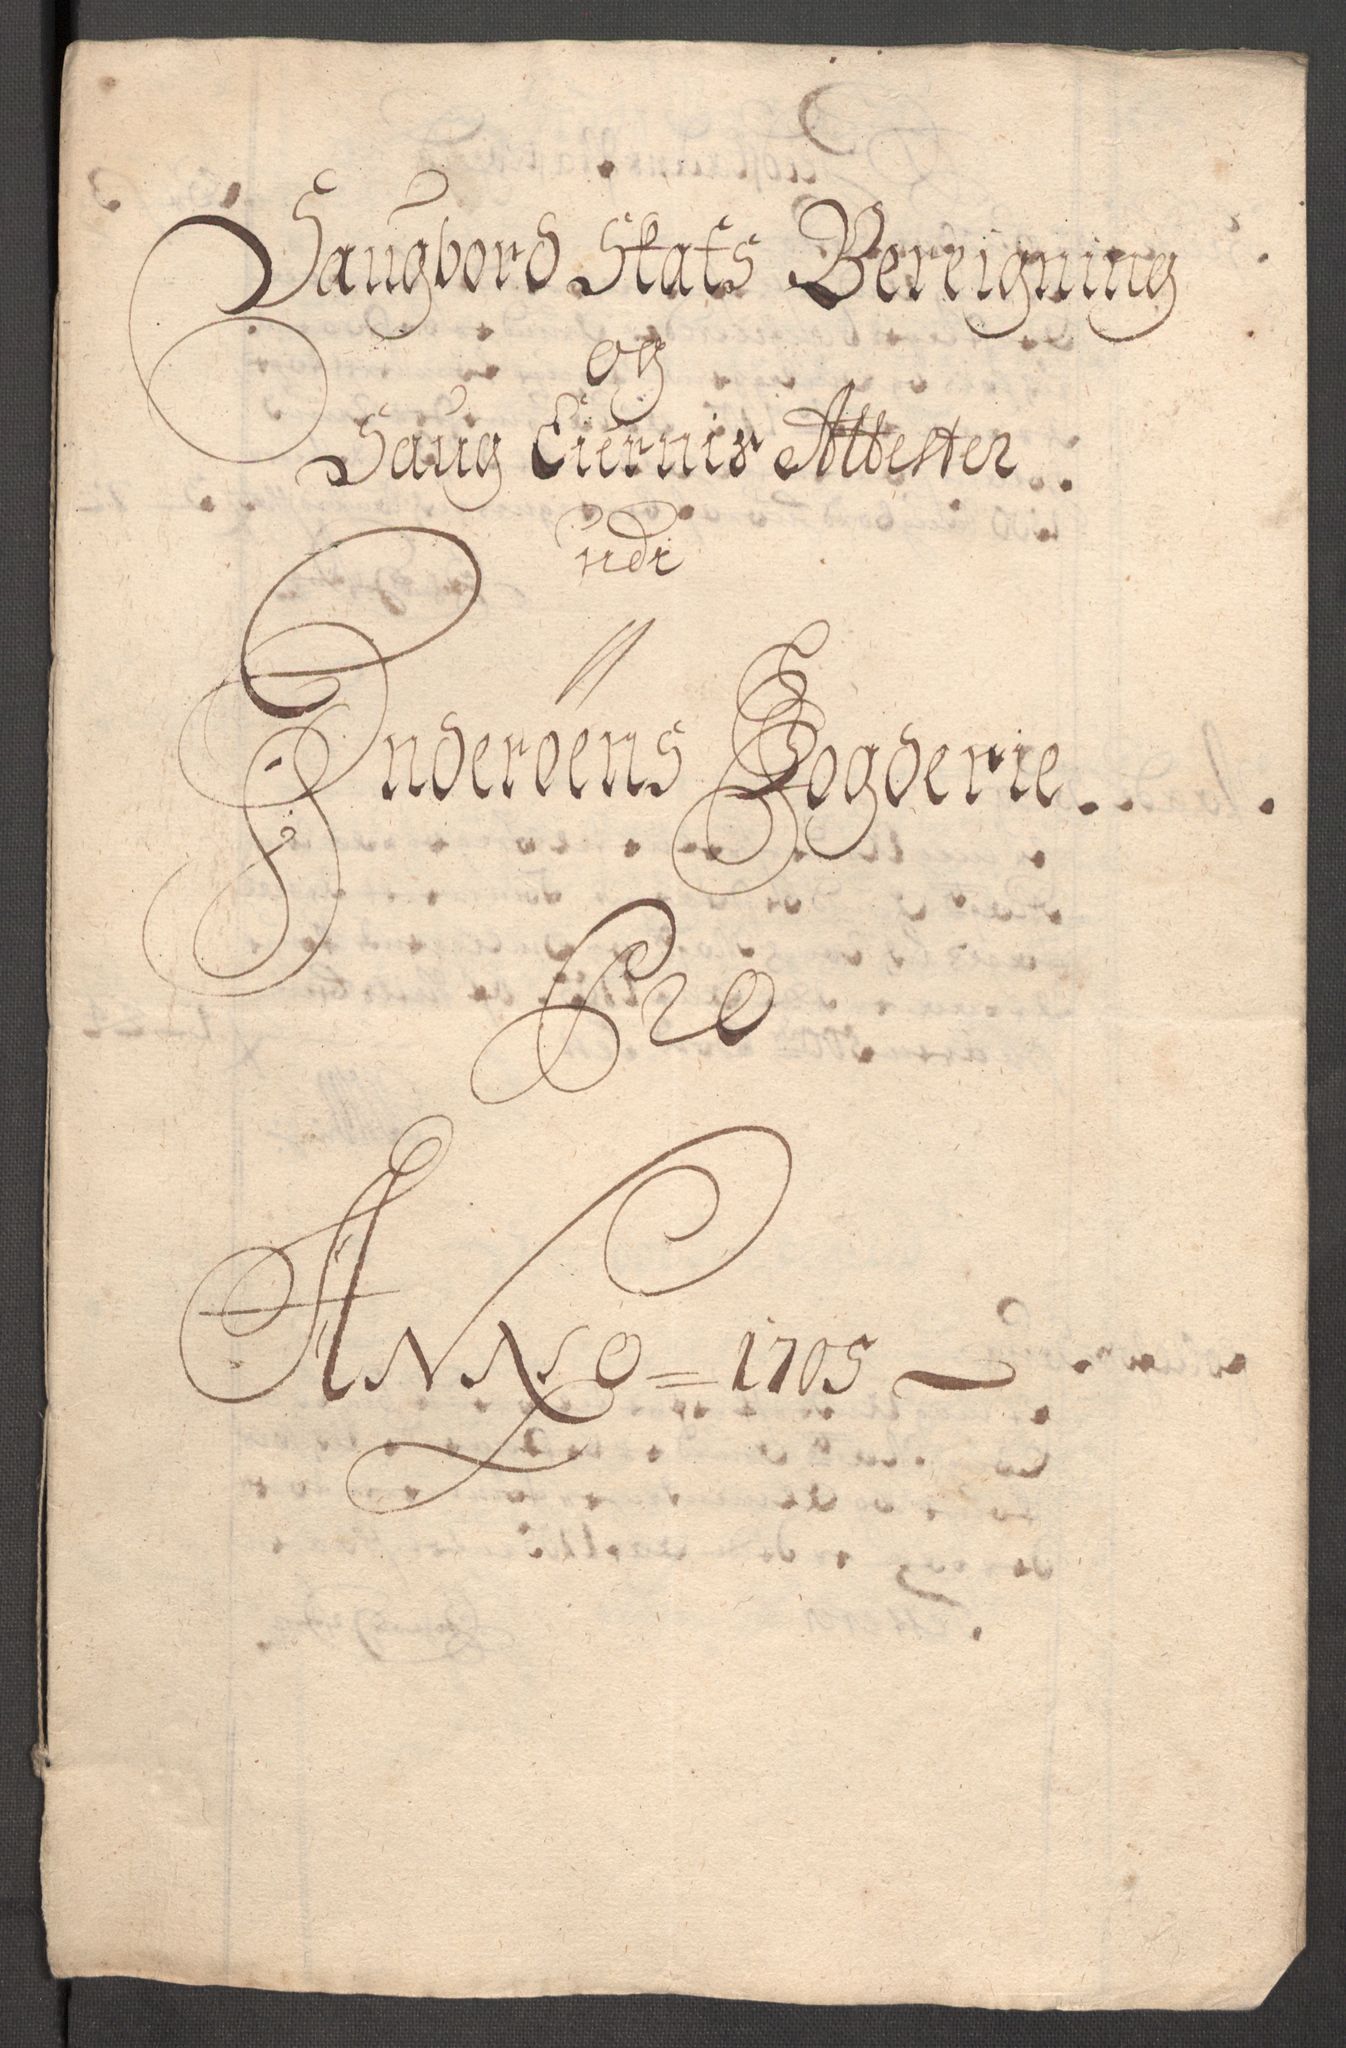 Saugbord Skats Bereigning
og
Saug Eiernis Attester
udi
Inderöens Fogderie
Pro
ANNO = 1705